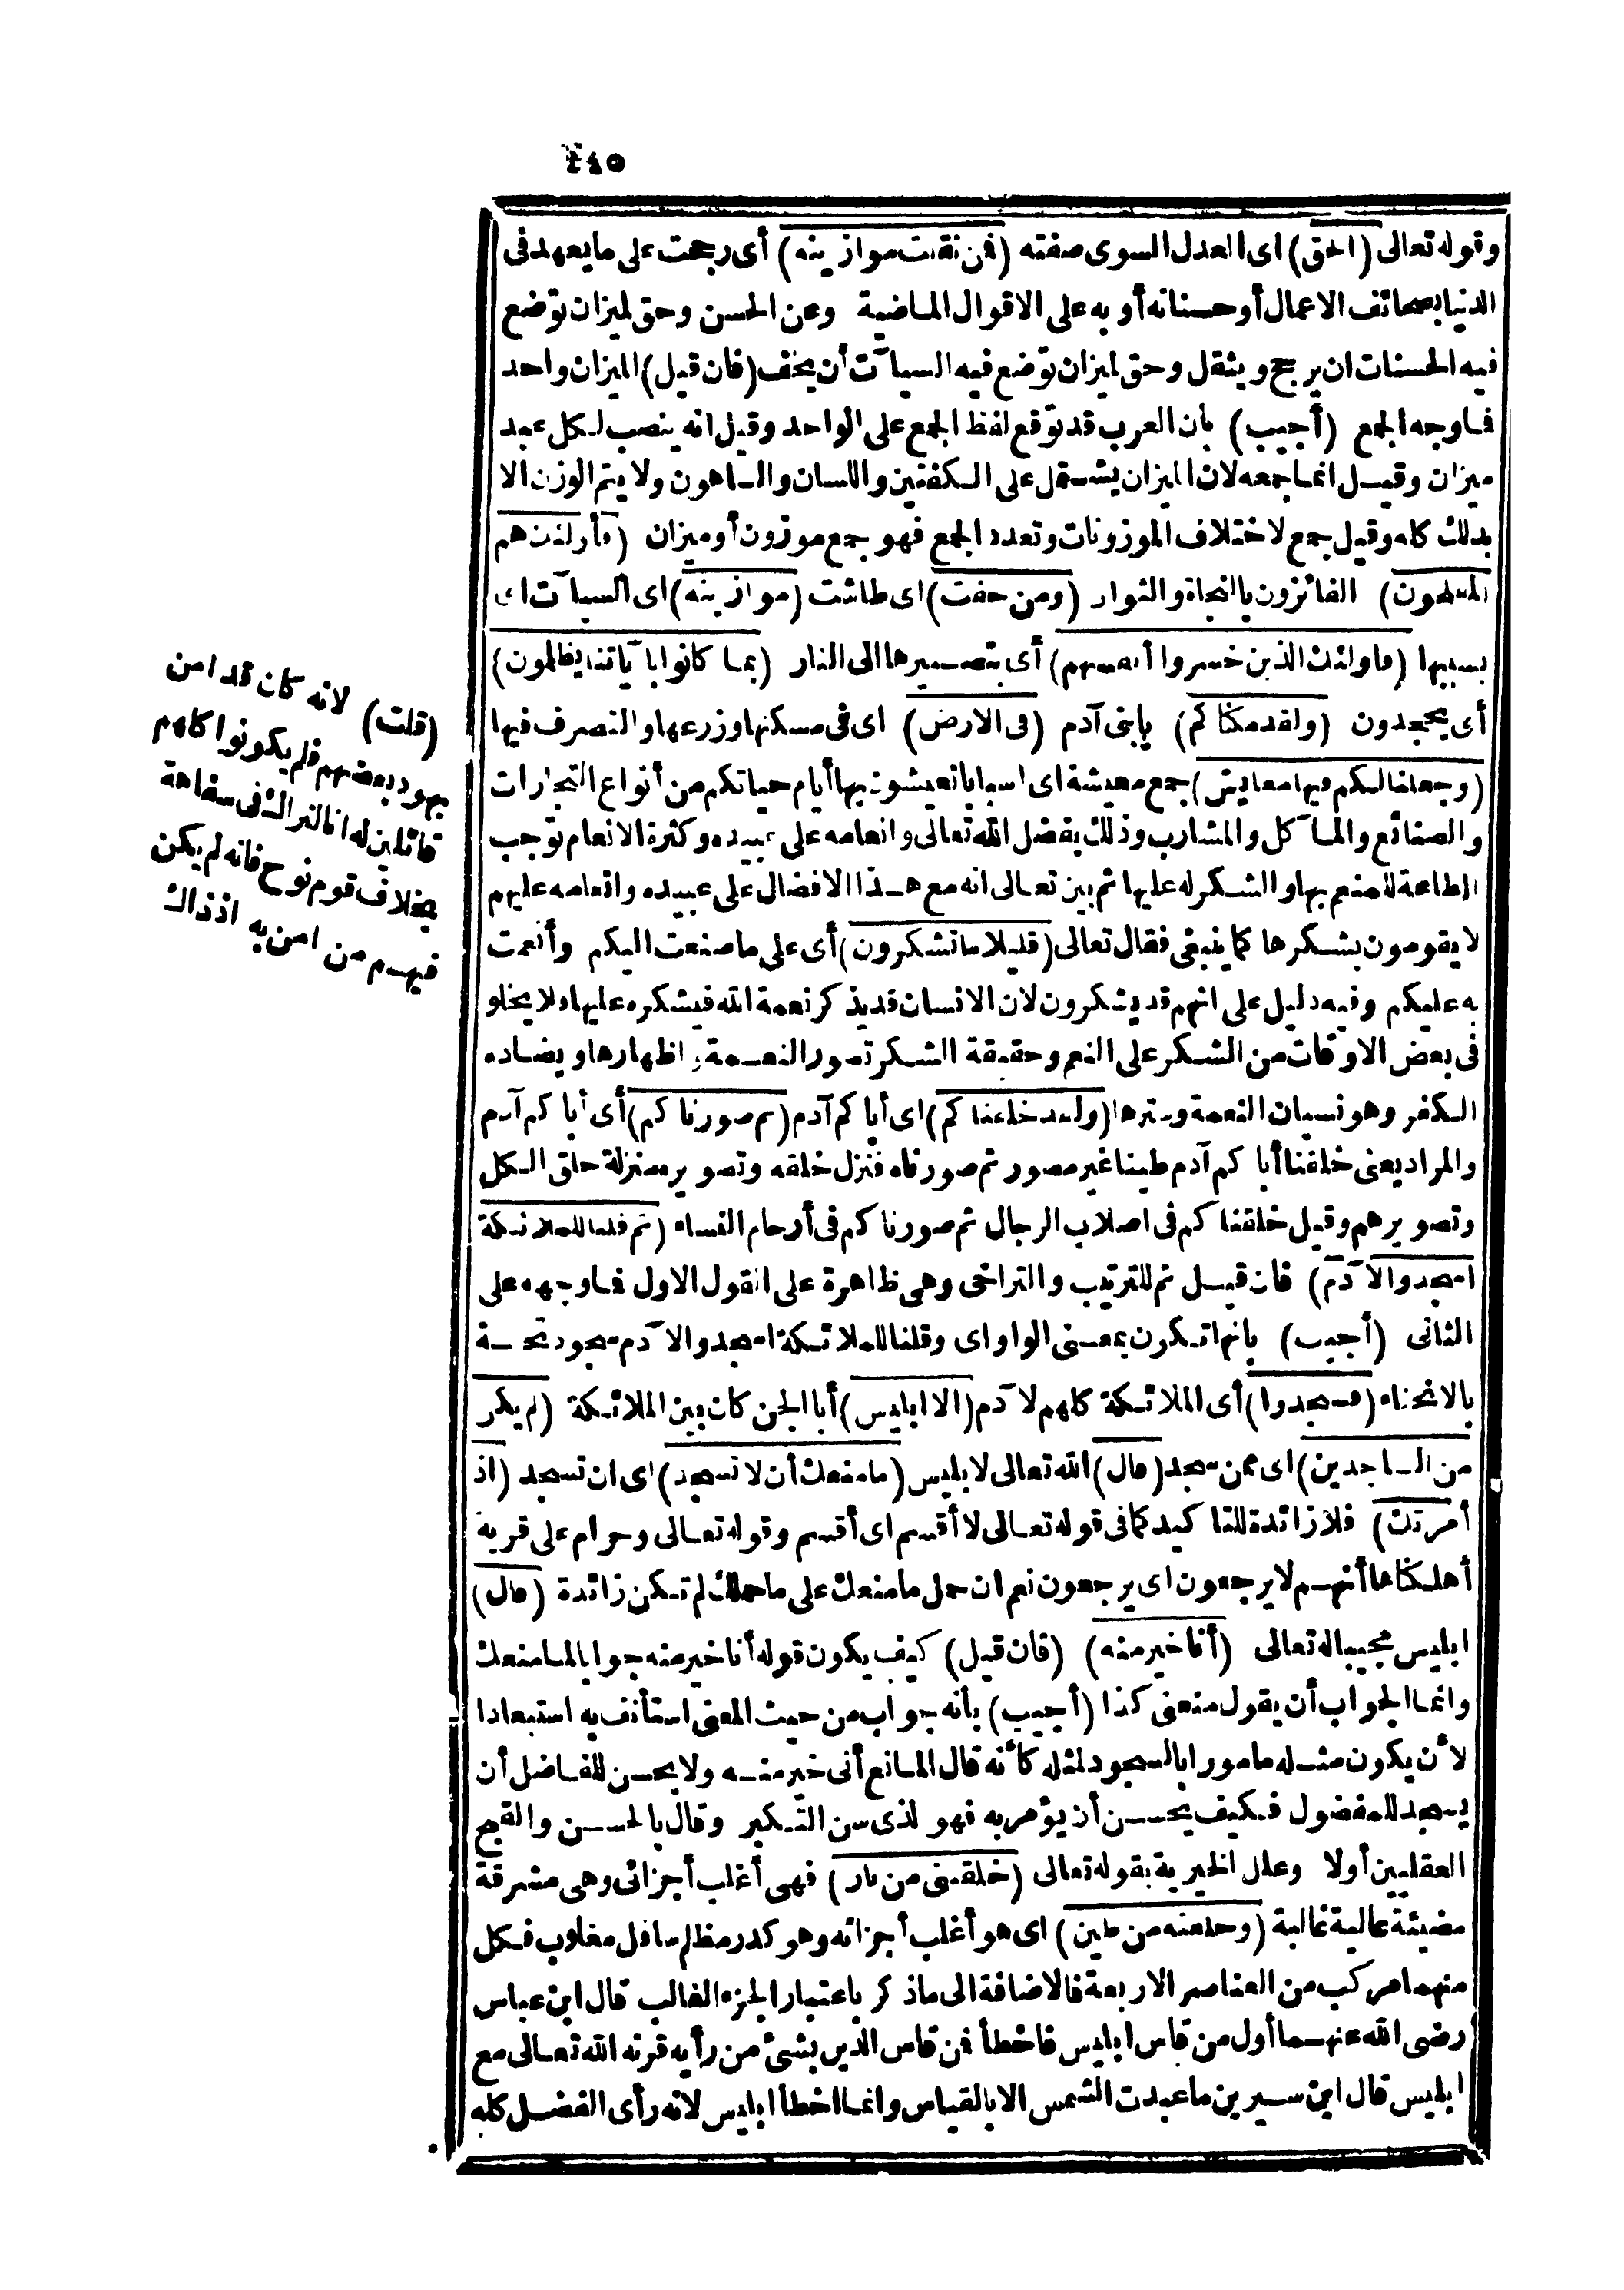 ٤٤٥
وقوله تعالى (الحق) اى العدل السوى صفته (فمن ثقلت موازينه) أى رجحت على ما يعهد فى
الدنيا بصحائف الاعمال أو حسناته أو به على الاقوال الماضية وعن الحسن وحق لميزان توضع
فيه الحسنات ان يرجح ويثقل وحق لميزان توضع فيه السيآت أن يخف (فان قيل) الميزان واحد
فما وجه الجمع (أجيب) بأن العرب قد توقع لفظ الجمع على الواحد وقيل انه ينصب لكل عبد
ميزان وقيل انما جمعه لان الميزان يشتمل على الكفتين واللسان والساهون ولا يتم الوزن الا
بذلك كله وقيل جمع لاختلاف الموزونات وتعدد الجمع فهو جمع موزون أو ميزان (فأولئك هم
المفلحون) الفائزون بالنجاة والثواب (ومن خفت) اى طاشت (موازينه) اى السيآت اى
بسببها (فاولئك الذين خسروا أنفسهم) أى بتصييرها الى النار (بما كانوا بآياتنا يظلمون)
أى يجحدون (ولقد مكناكم) يا بنى آدم (فى الارض) اى فى مسكنها وزرعها والتصرف فيها
(وجعلنا لكم فيها معايش) جمع معيشة اى اسبابا تعيشون بها أيام حياتكم من أنواع التجارات
والصنائع والمآكل والمشارب وذلك بفضل الله تعالى وانعامه على عبيده وكثرة الانعام توجب
الطاعة للمنعم بها والشكر له عليها ثم بين تعالى انه مع هذا الافضال على عبيده وانعامه عليهم
لا يقومون بشكرها كما ينبغى فقال تعالى (قليلا ما تشكرون) أى على ما صنعت اليكم وأنعمت
به عليكم وفيه دليل على انهم قد يشكرون لان الانسان قد يذكر نعمة الله فيشكره عليها ولا يخلو
فى بعض الاوقات من الشكر على النعم وحقيقة الشكر تصور النعمة واظهارها ويضاده
الكفر وهو نسيان النعمة وسترها (ولقد خلقناكم) اى أباكم آدم (ثم صورناكم) أى أباكم آدم
والمراد يعنى خلقنا أباكم آدم طينا غير مصور ثم صورناه فنزل خلقه وتصويره منزلة خلق الكل
وتصويرهم وقيل خلقناكم فى اصلاب الرجال ثم صورناكم فى أرحام النساء (ثم قلنا للملائكة
اسجدوا لآدم) فان قيل ثم للترتيب والتراخى وهى ظاهرة على القول الاول فما وجهه على
الثانى (أجيب) بانها تكون بمعنى الواو اى وقلنا للملائكة اسجدوا لآدم سجود تحية
بالانحناء (فسجدوا) أى الملائكة كلهم لآدم (الا ابليس) أبا الجن كان بين الملائكة (لم يكن
من الساجدين) اى ممن سجد (قال) الله تعالى لابليس (ما منعك أن لا تسجد) اى ان تسجد (اذ
أمرتك) فلا زائدة للتاكيد كما فى قوله تعالى لا أقسم اى أقسم وقوله تعالى وحرام على قرية
أهلكناها أنهم لا يرجعون اى يرجعون نعم ان حمل ما منعك على ما حملك لم تكن زائدة (قال)
ابليس مجيبا له تعالى (أنا خير منه) (فان قيل) كيف يكون قوله أنا خير منه جوابا لما منعك
وانما الجواب أن يقول منعنى كذا (أجيب) بأنه جواب من حيث المعنى استأنف به استبعادا
لأن يكون مثله مامورا بالسجود لمثله كأنه قال المانع أنى خير منه ولا يحسن للفاضل أن
يسجد للمفضول فكيف يحسن أن يؤمر به فهو لذى سن التكبر وقال بالحسن والقبح
العقليين أولا وعلل الخيرية بقوله تعالى (خلقتنى من نار) فهى أغلب أجزائى وهى مشرقة
مضيئة عالية غالبة (وخلقته من طين) اى هو أغلب أجزائه وهو كدر مظلم سافل مغلوب فكل
منهما مركب من العناصر الاربعة فالاضافة الى ما ذكر باعتبار الجزء الغالب قال ابن عباس
رضى الله عنهما أول من قاس ابليس فاخطأ فمن قاس الدين بشئ من رأيه قرنه الله تعالى مع
ابليس قال ابن سيرين ما عبدت الشمس الا بالقياس وانما اخطأ ابليس لانه رأى الفضل كله
(قلت) لانه كان قد امن
بهود بعضهم فلم يكونوا كلهم
قائلين له انا لنراك فى سفاهة
بخلاف قوم نوح فانه لم يكن
فيهم من امن به اذ ذاك